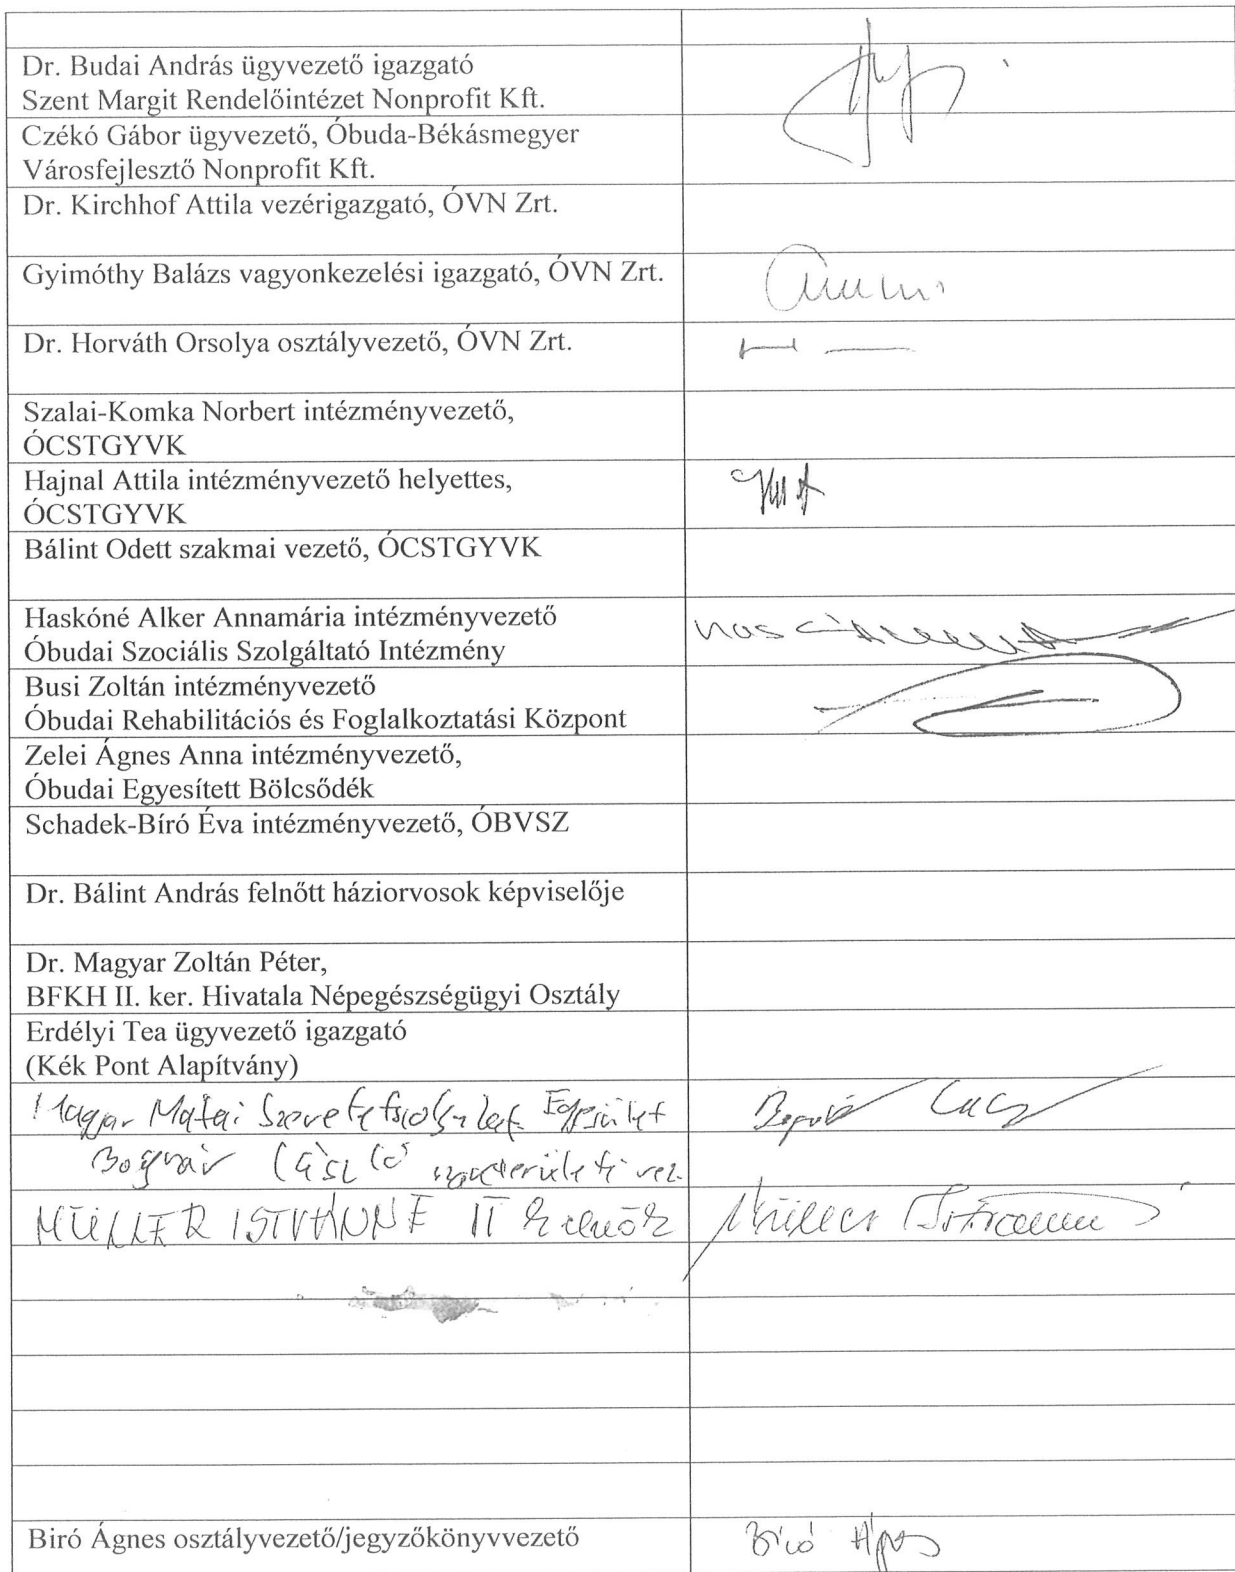 Dr. Budai András ügyvezető igazgató
Szent Margit Rendelőintézet Nonprofit Kft.
Czékó Gábor ügyvezető, Óbuda-Békásmegyer
Városfejlesztő Nonprofit Kft.
Dr. Kirchhof Attila vezérigazgató, ÓVN Zrt.
Gyimóthy Balázs vagyonkezelési igazgató, ÓVN Zrt.
Dr. Horváth Orsolya osztályvezető, ÓVN Zrt.
Szalai-Komka Norbert intézményvezető,
ÓCSTGYVK
Hajnal Attila intézményvezető helyettes,
ÓCSTGYVK
Bálint Odett szakmai vezető, ÓCSTGYVK
Haskóné Alker Annamária intézményvezető
Óbudai Szociális Szolgáltató Intézmény
Busi Zoltán intézményvezető
Óbudai Rehabilitációs és Foglalkoztatási Központ
Zelei Ágnes Anna intézményvezető,
Óbudai Egyesített Bölcsődék
Schadek-Bíró Éva intézményvezető, ÓBVSZ
Dr. Bálint András felnőtt háziorvosok képviselője
Dr. Magyar Zoltán Péter,
BFKH II. ker. Hivatala Népegészségügyi Osztály
Erdélyi Tea ügyvezető igazgató
(Kék Pont Alapítvány)
Magyar Máltai Szeretetszolgálat Egyesület
Bognár László vez.
MÜLLER ISTVÁNNÉ elnök Müller Istvánné
Biró Ágnes osztályvezető/jegyzőkönyvvezető Biró Ágnes